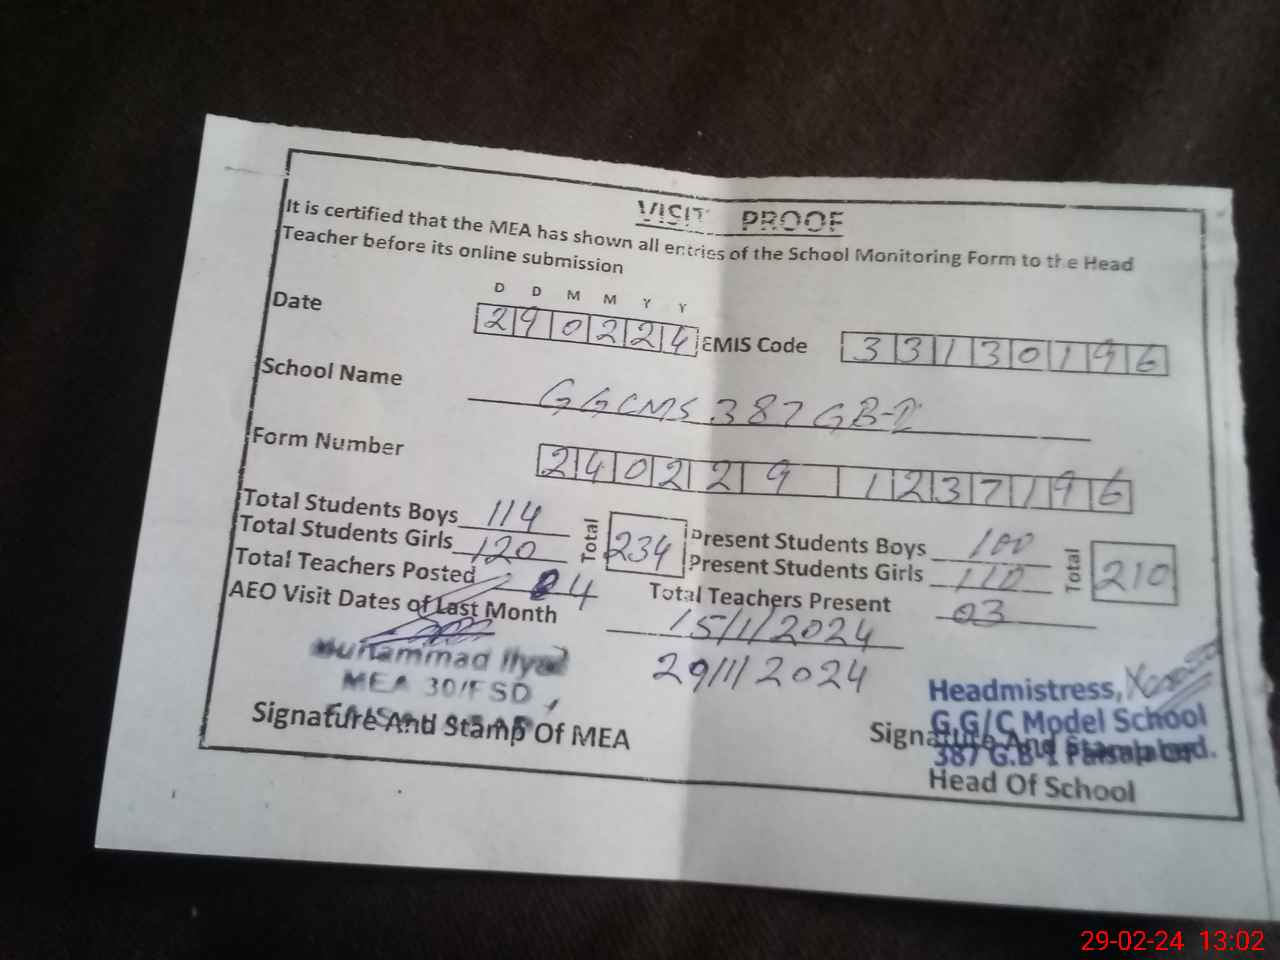 VISIT PROOF
It is certified that the MEA has shown all entries of the School Monitoring Form to the Head
Teacher before its online submission
D D M M Y Y
Date 290224 EMIS Code 33130196
School Name GGCMS 387 GB-I
Form Number 2402291237196
Total Students Boys 114 Total 234 Present Students Boys 100 Total 210
Total Students Girls 120 Present Students Girls 110
Total Teachers Posted 04 Total Teachers Present 03
AEO Visit Dates of Last Month 15/1/2024
29/1/2024
Muhammad Ilyas
MEA 30/FSD
Signature And Stamp Of MEA
Headmistress,
G.G/C Model School
387 G.B-I Faisalabad.
Signature And Stamp
Head Of School
29-02-24 13:02